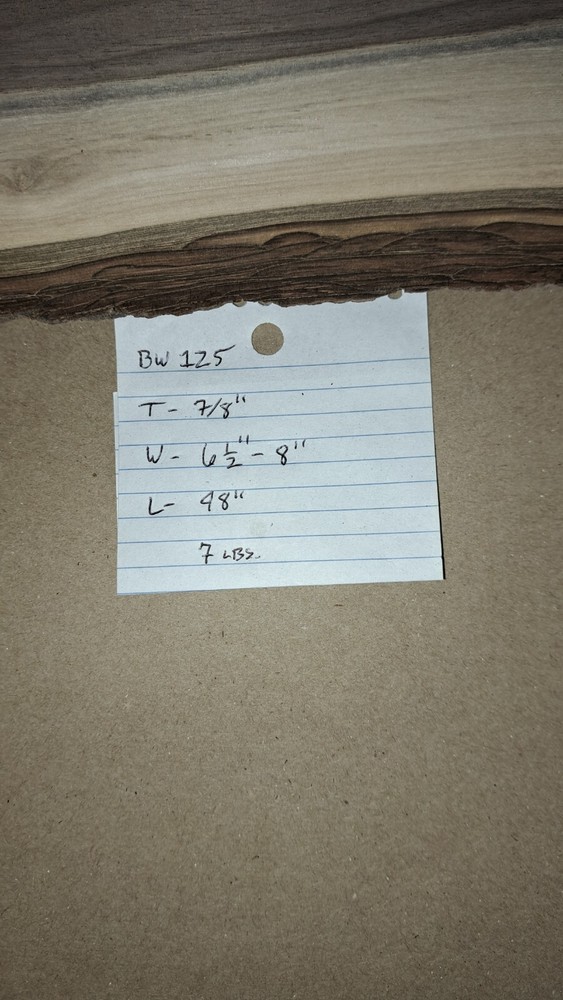 BW 125
T - 7/8"
W - 6 1/2" - 8"
L - 48"
7 LBS.